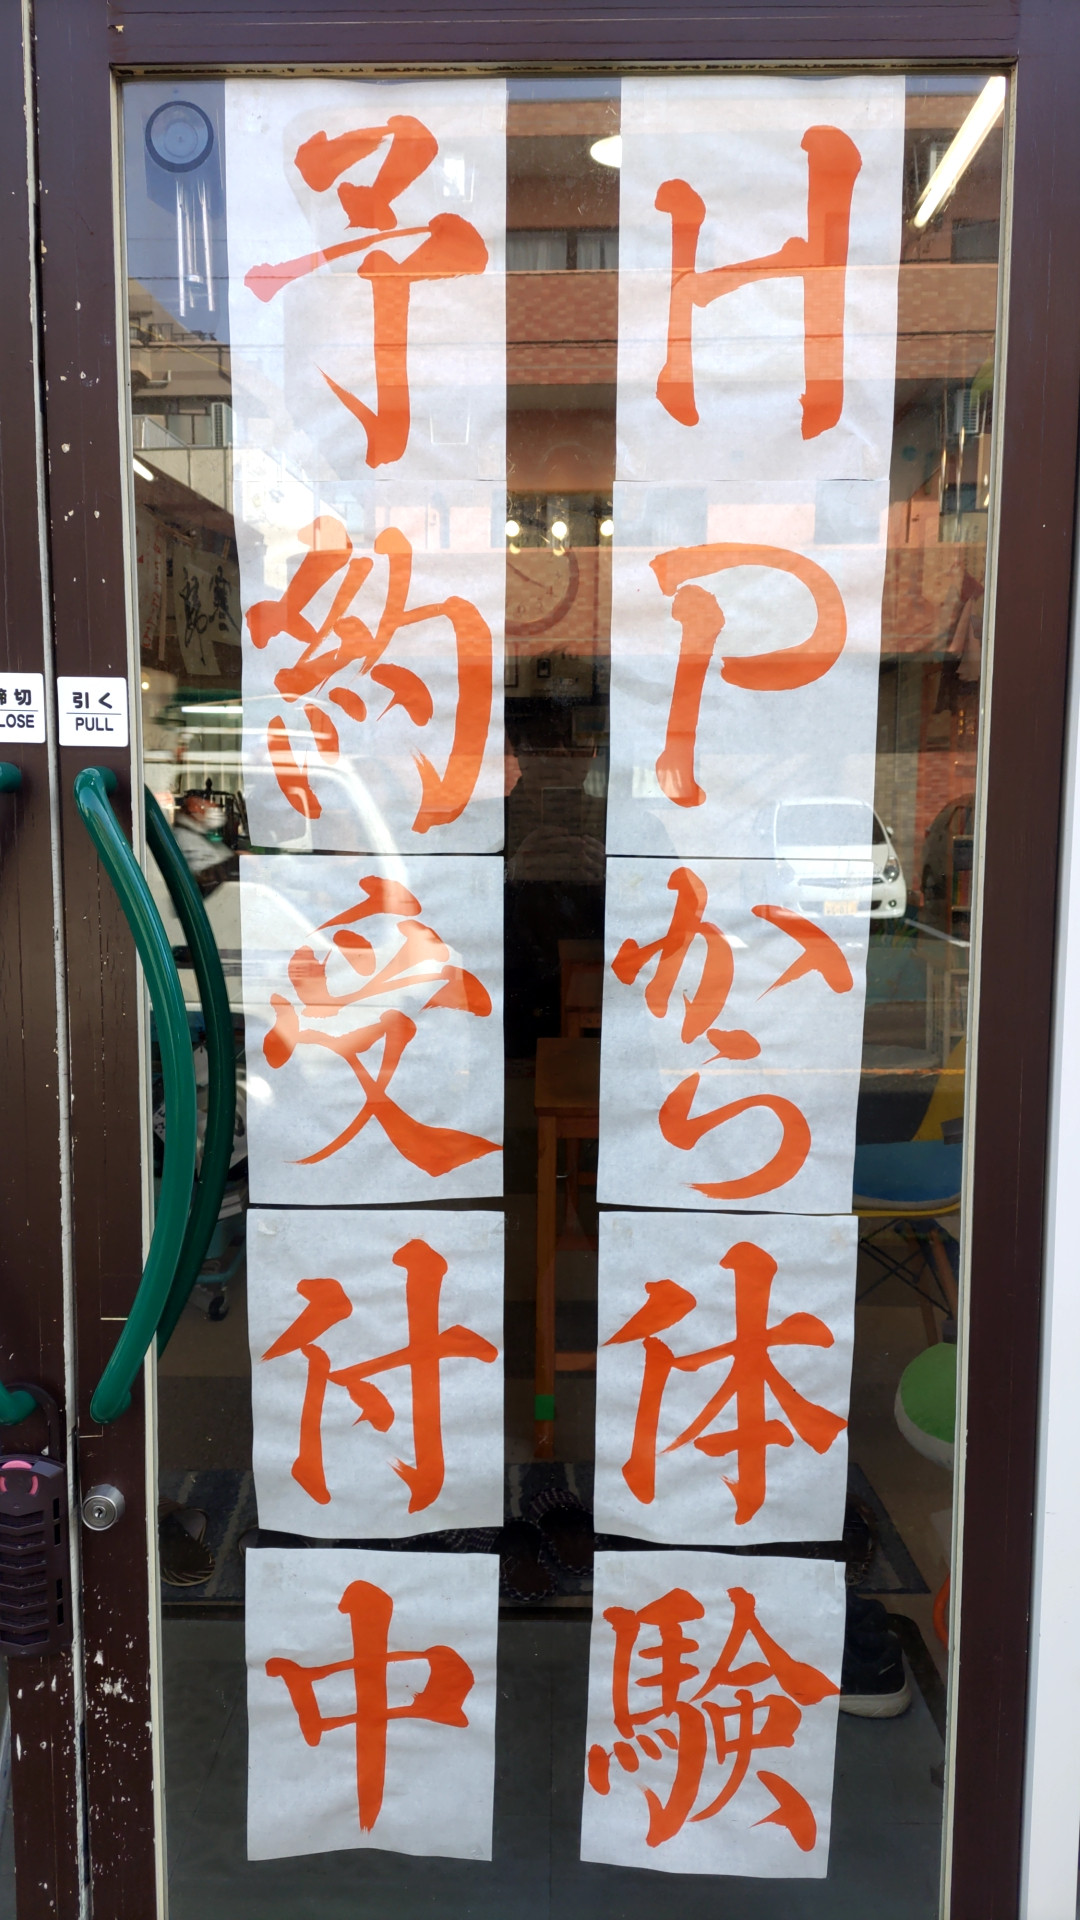 HPから体験
予約受付中
引く
PULL
切
LOSE